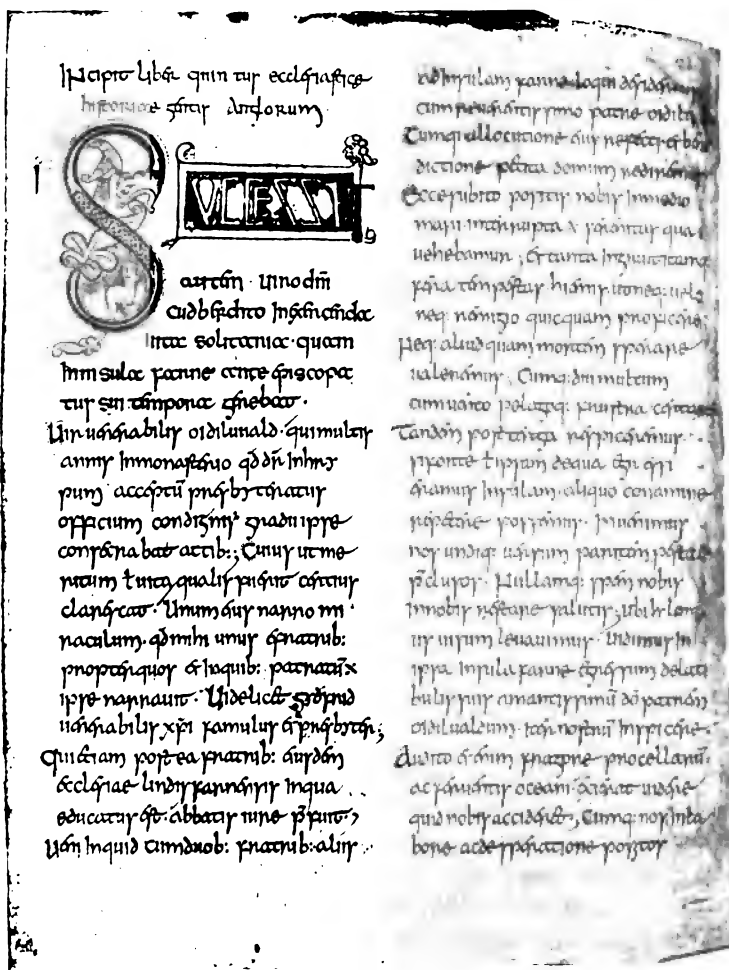 Incipit liber quintus ecclesiastice
historiae gentis Anglorum
SUCESSIT
autem · uiro dni
cudberchto In exercenda
uita solitaria · quam
In insula farne ante episcopa
tus sui tempora gerebat ·
Uir uenerabilis oidiluuald · qui multis
annis In monasterio qd dr Inhry
pum acceptū presbyteratus
officium condignis gradu ipse
consecrabat actib:; Cuius ut me
ritum ł uita qualis fuerit certius
clarescat · Unum eius narro mi
raculum · qd mihi unus e fratrib:
propter quos & In quib: patratū ÷
ipse narrauit · Uidelicet gudfrid
uenerabilis xpi famulus & presbyter;
Qui etiam postea fratrib: eiusdem
ecclesiae lindisfarnensis In qua
educatus est · abbatis iure p̄fuit;
Ueni Inquid cum duob: fratrib: aliis
ad Insulam farne loqui desiderans
cum reuerentissimo patre oidilu
Cumq: allocutione eius refecti & bene
dictione petita domum rediremus
Ecce subito positis nobis In medio
mari · Interrupta ÷ serenitas qua
uehebamur; & tanta Ingruit tamq:
fera tempestatis hiems ut neq: uelo
neq: remigio quicquam proficere
Neq: aliud quam mortem sperare
ualeremus; Cumq: diu multum
cum uento pelagoq: frustra certantes
Tandem post terga respiceremus ·
si forte ł ipsam de qua egressi
eramus Insulam · aliquo conamine
repetere possemus · Inuenimus
nos undiq: uersum pari tempestate
p̄clusos · Nullamq: spem nobis
In nobis restare salutis; Ubi long
ius uisum leuauimus · Uidimus In
ipsa Insula farne egressum de lati
bulis suis amantissimū dō patrem
oidilualdum · iter nostrū Inspicere ·
Audito etenim fragore procellarū ·
ac feruentis oceani · exierat uidere
quid nobis accideret; Cumq: nos In la
bore ac desperatione positos